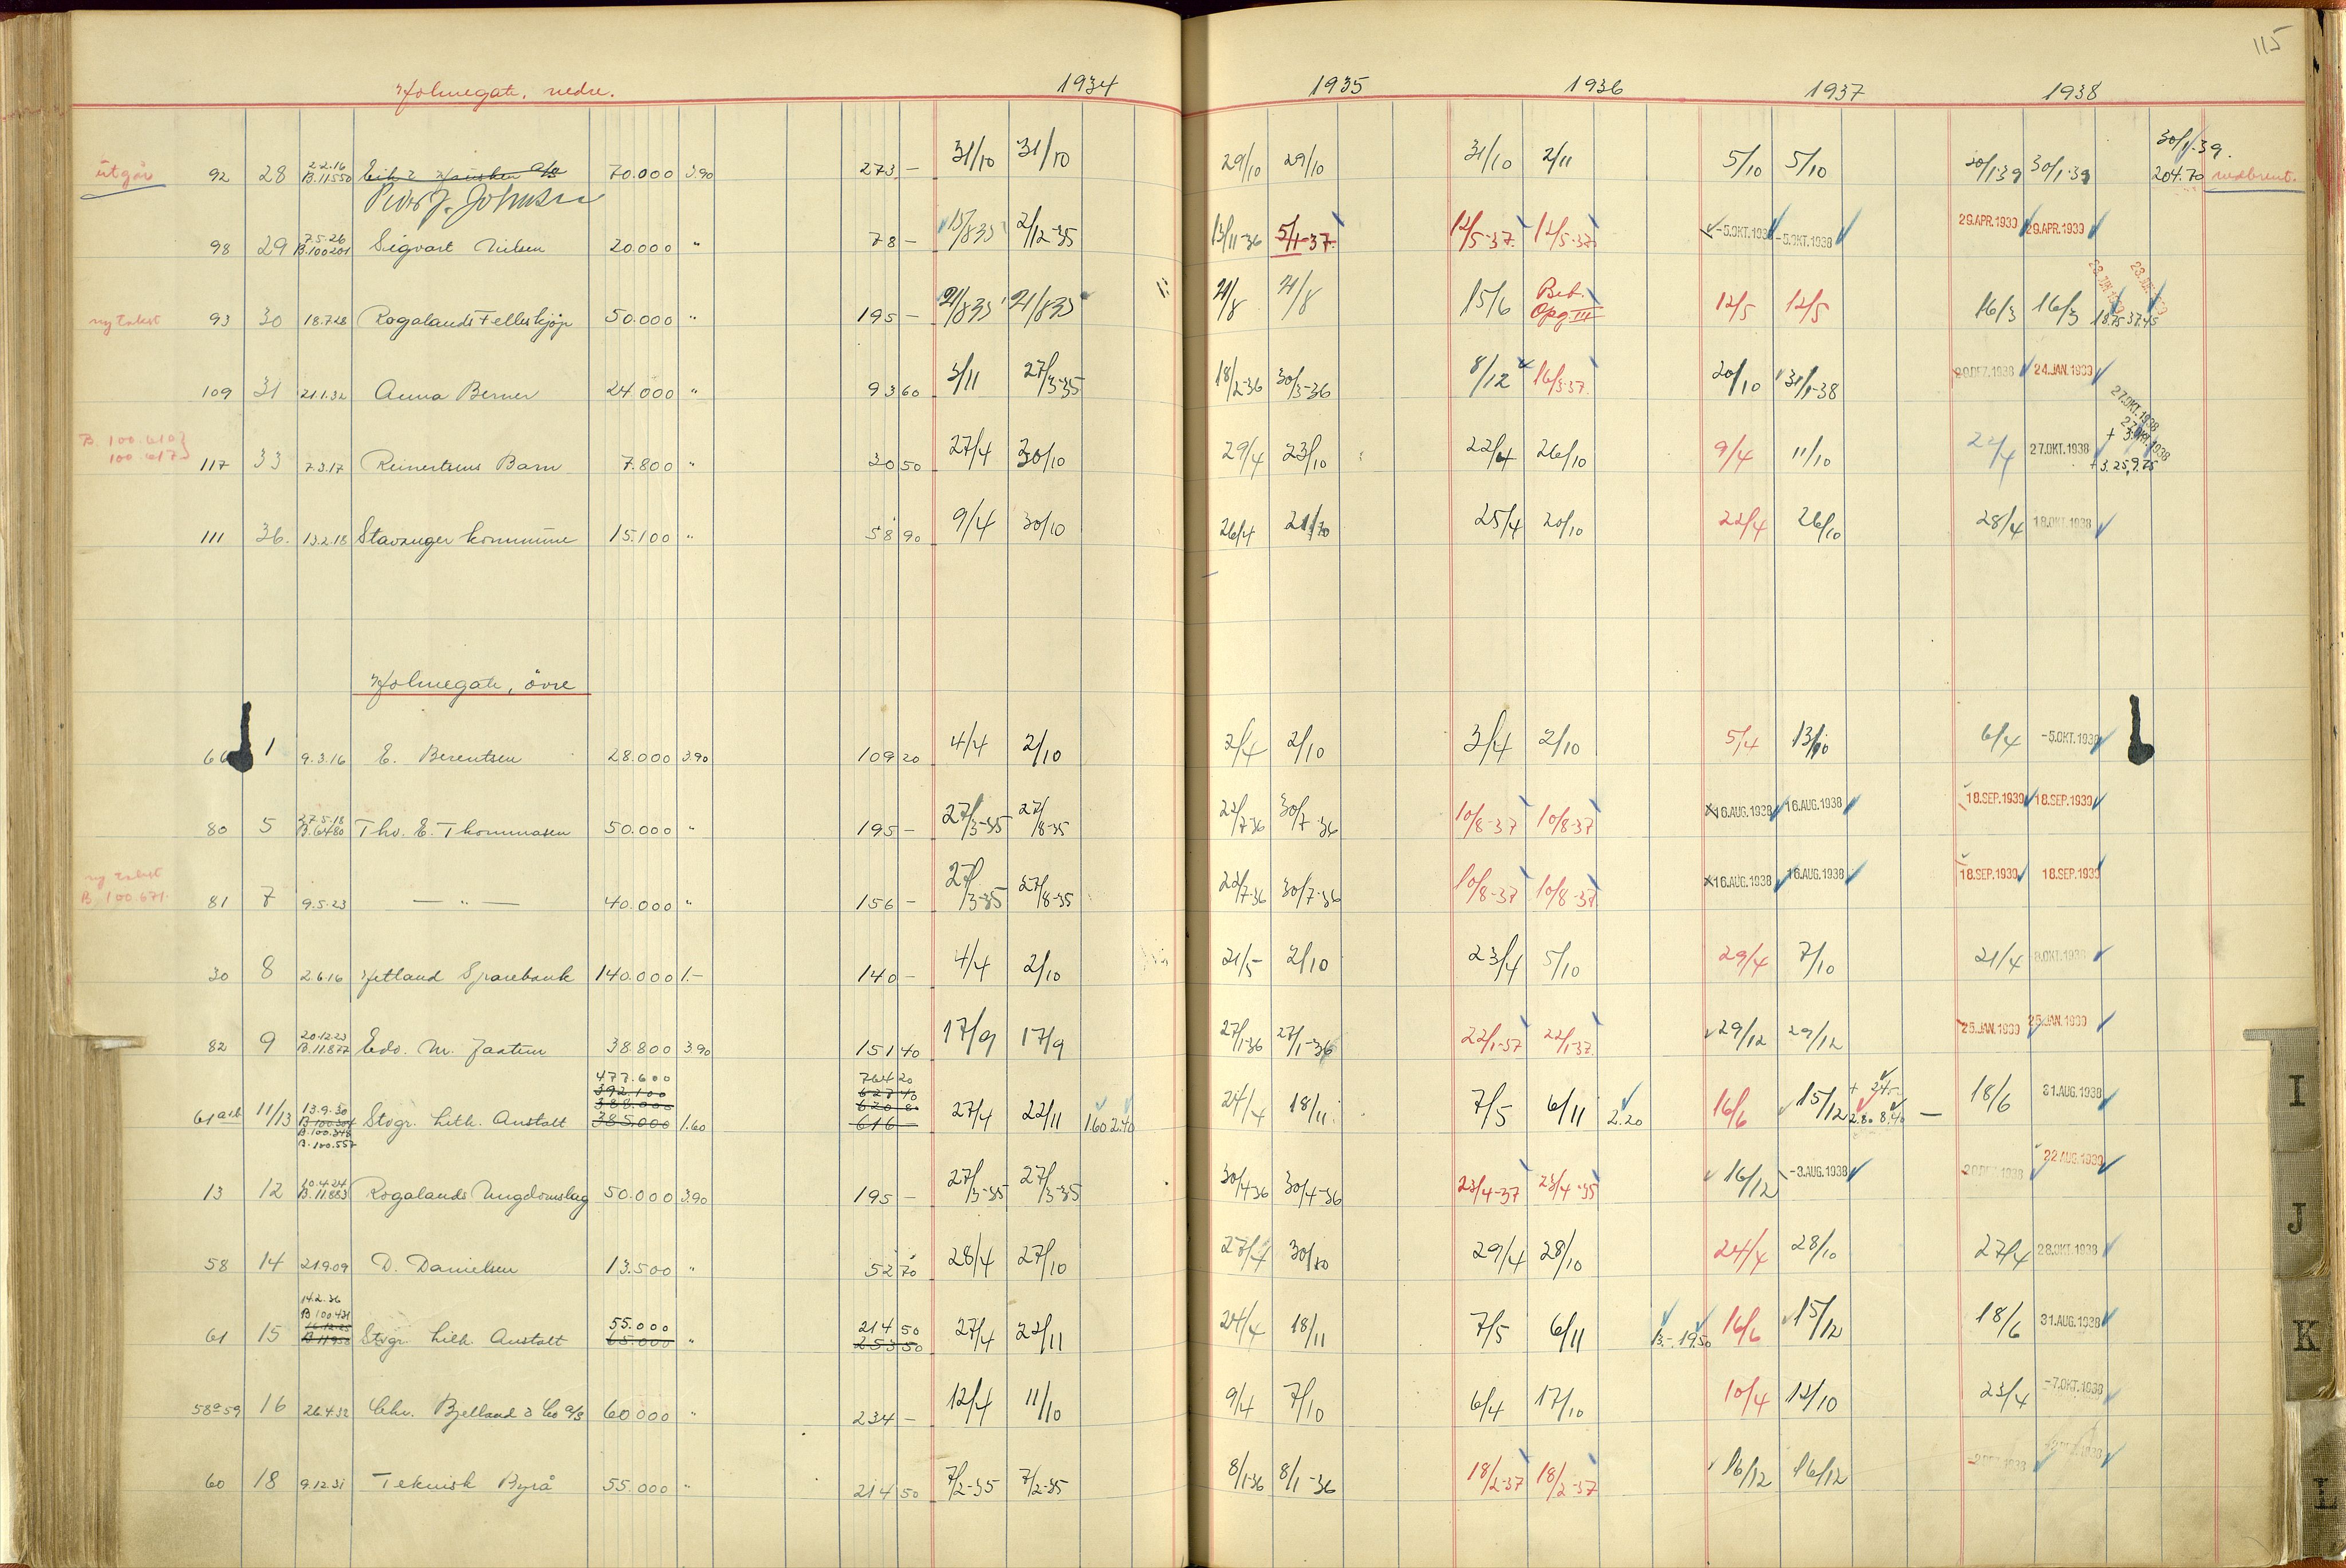 115
Holmegate, nedre. 1934 1935 1936 1937 1938
30/1-39.
Utgår 92 28 2.2.16 B.11550 70.000 3.90 273 - 31/10 31/10 29/10 29/10 31/10 2/11 5/10 5/10 30/1-39 30/1-39 204.70 nedbrent.
Peder J. Johnsen
98 29 7.5.26 B.100201 Sigvart Nilsen 20.000 " 78 - 15/8 35 2/12-35 13/11-36 5/1-37. 12/5-37. 12/5-37. -5.OKT.1938 -5.OKT.1938 29.APR.1939 29.APR.1939
ny takst 93 30 18.7.28 Rogalands Felleskjøp 50.000 " 195 - 21/8 35 21/8 35 21/8 21/8 15/6 Bet. Opg. III 12/5 12/5 16/3 16/3 18.75 37.45
109 31 21.1.32 Anna Berner 24.000 " 93 60 3/11 27/3-35 18/2-36 30/3-36 8/12 16/3-37. 20/10 31/1-38 20.DEZ.1938 24.JAN.1939
B. 100.610 } 100.617 } 117 33 7.3.17 Reinertsens Barn 7.800 " 30 50 27/4 30/10 29/4 23/10 22/4 26/10 9/4 11/10 22/4 27.OKT.1938 27.OKT.1938 27.OKT.1938 + 3.25, 9.75
111 36. 13.2.18 Stavanger kommune 15.100 " 58 90 9/4 30/10 26/4 21/10 25/4 20/10 22/4 26/10 28/4 18.OKT.1938
Holmegate, övre
66 1 9.3.16 E. Berentsen 28.000 3.90 109 20 4/4 2/10 2/4 2/10 3/4 2/10 5/4 13/10 6/4 -5.OKT.1938
80 5 27.5.18 B.6480 Tho. E. Thommasen 50.000 " 195 - 27/3-35 27/8-35 22/7-36 30/7-36 10/8-37 10/8-37 16.AUG.1938 16.AUG.1938 18.SEP.1939 18.SEP.1939
ny takst B. 100.671. 81 7 9.5.23 — " — 40.000 " 156 - 27/3-35 27/8-35 22/7-36 30/7-36 10/8-37 10/8-37 16.AUG.1938 16.AUG.1938 18.SEP.1939 18.SEP.1939
30 8 2.6.16 Hetland Sparebank 140.000 1.- 140 - 4/4 2/10 21/5 2/10 23/4 5/10 29/4 7/10 21/4 8.OKT.1938
82 9 20.12.23 B.11.877 Edv. M. Jaatun 38.800 3.90 151 40 17/9 17/9 27/1-36 27/1-36 22/1-37 22/1-37. 29/12 29/12 25.JAN.1939 25.JAN.1939
477.600 764 20
392.100 627 40
388.000 620 80
61 a+b 11/13 13.9.30 B.100.304 B.100.348 B.100.557 Stvgr. Lith. Anstalt 385.000 1.60 616 - 27/4 22/11 1.60 2.40 24/4 18/11 7/5 6/11 2.20 16/6 15/12 2.80 8.40 — 18/6 31.AUG.1938
13 12 10.4.24 B.11.883 Rogalands Ungdomslag 50.000 3.90 195 - 27/3-35 27/3-35 30/4-36 30/4-36 23/4-37 23/4-35 16/12 -3.AUG.1938 22 AUG.1939
58 14 21.9.09 D. Danielsen 13.500 " 52 70 28/4 27/10 27/4 30/10 29/4 28/10 24/4 28/10 27/4 28.OKT.1938
61 15 14.2.36 B 100431 16.12.25 B 11950 Stvgr. Lith. Anstalt 55.000 65.000 " 214 50 253 50 27/4 22/11 24/4 18/11 7/5 6/11 13.- 19.50 16/6 15/12 18/6 31.AUG.1938
58 a 59 16 26.4.32 Chr. Bjelland & Co a/s 60.000 " 234 - 12/4 11/10 9/4 7/10 6/4 17/10 10/4 12/10 23/4 -7.OKT.1938
60 18 9.12.31 Teknisk Byrå 55.000 " 214 50 7/2-35 7/2-35 8/1-36 8/1-36 18/2-37 18/2-37 16/12 16/12
I
J
K
L